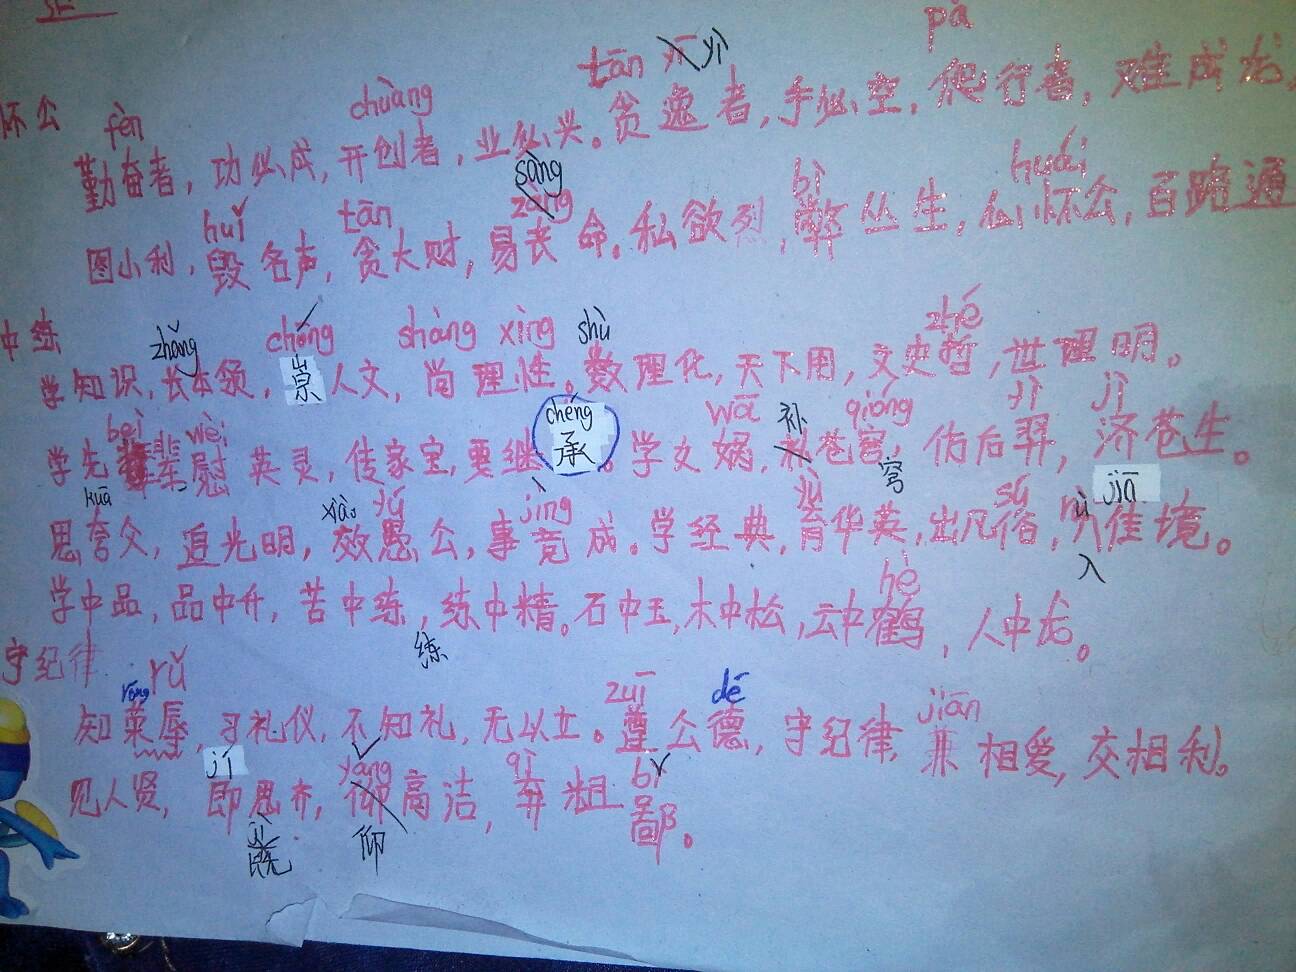 pá
tān yī yì
chuàng
fèn
怀公
勤奋者，功必成，开创者，业必兴。贪逸者，手必空，爬行者，难成龙，
sàng
bì
huái
huǐ tān zàng
图小利，毁名声，贪大财，易丧命。私欲烈，弊丛生，心怀公，百路通
中练
zhǎng chóng shàng xìng shù zhé
学知识，长本领，崇人文，尚理性。数理化，天下用，文史哲，世理明。
bèi wèi chéng wā 补 qióng yì jì
学先辈，慰英灵，传家宝，要继承。学女娲，补苍穹，仿后羿，济苍生。
穹
kuā xiào yú jìng yù sú rù jiā
思夸父，追光明，效愚公，事竟成。学经典，育华英，出凡俗，入佳境。
入
hè
学中品，品中升，苦中练，练中精。石中玉，木中松，云中鹤，人中龙。
练
守纪律
róng rǔ zuī dé jiān
知荣辱，习礼仪，不知礼，无以立。遵公德，守纪律，兼相爱，交相利。
jí yǎng qì bǐ
见人贤，即思齐，仰高洁，弃粗鄙。
jì
既 仰